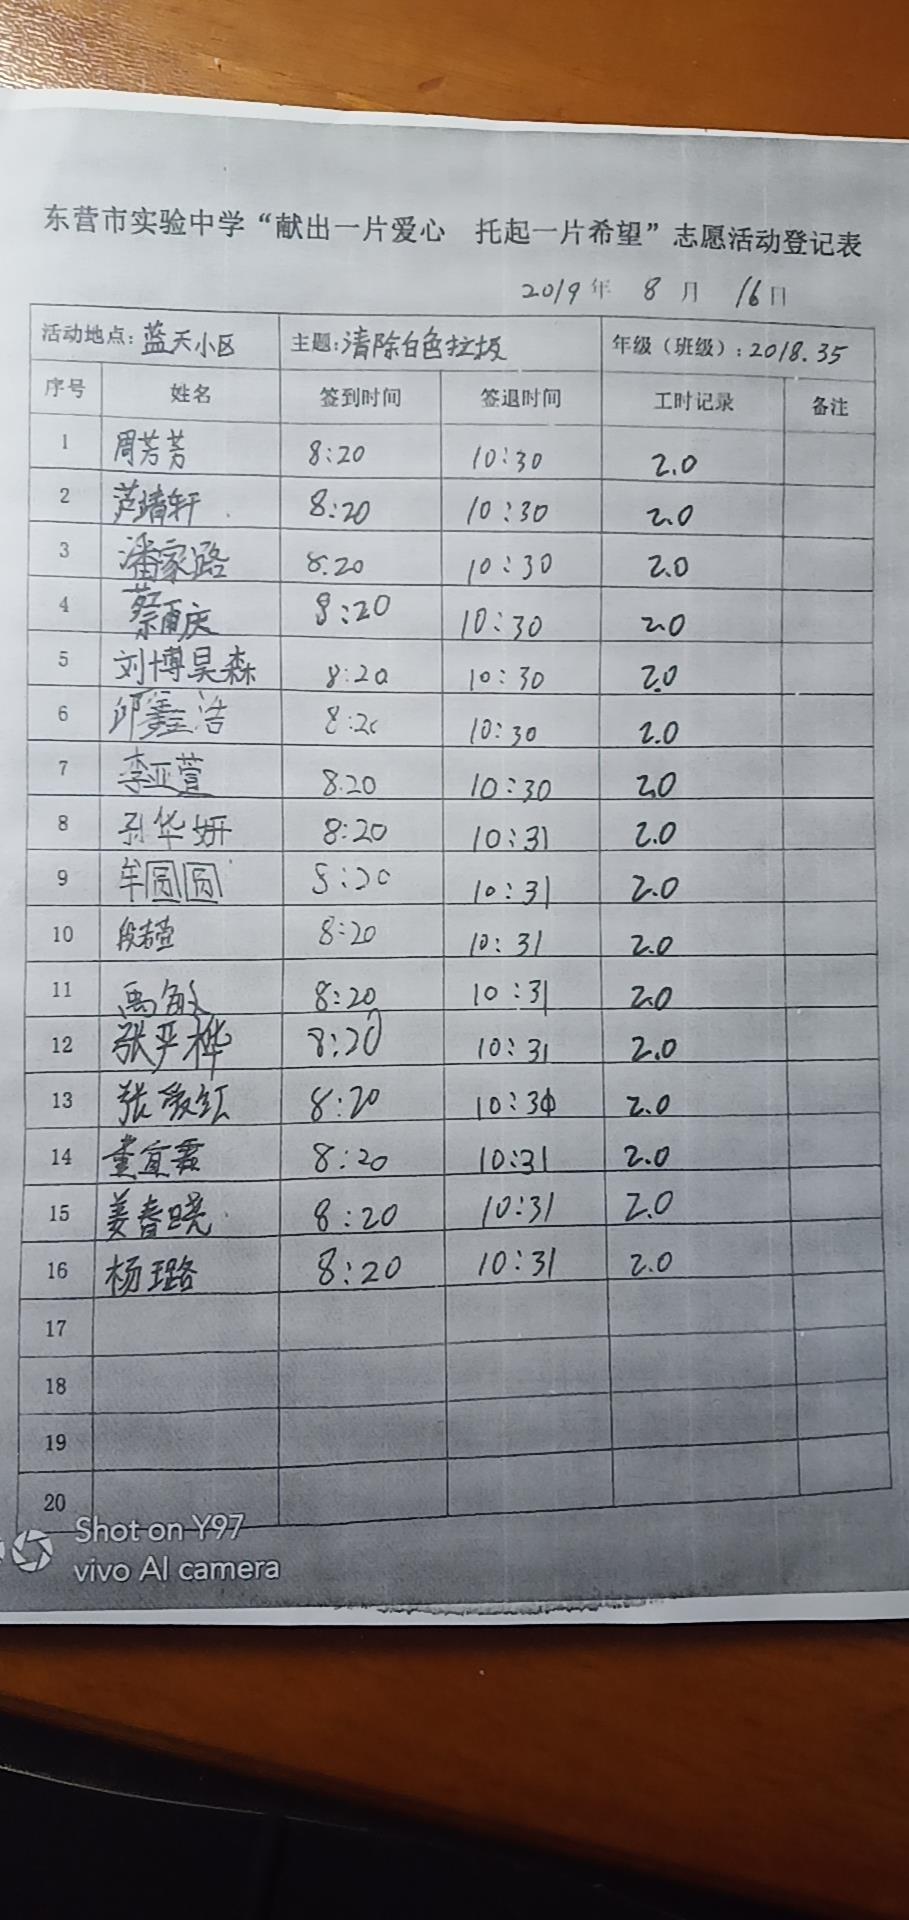 东营市实验中学“献出一片爱心 托起一片希望”志愿活动登记表
2019年 8月 16日
活动地点：蓝天小区 主题：清除白色垃圾 年级（班级）：2018.35
序号 姓名 签到时间 签退时间 工时记录 备注
1 周芳芳 8:20 10:30 2.0
2 芦靖轩 8:20 10:30 2.0
3 潘家路 8:20 10:30 2.0
4 蔡雨庆 8:20 10:30 2.0
5 刘博昊森 8:20 10:30 2.0
6 邱鑫浩 8:20 10:30 2.0
7 李亚萱 8:20 10:30 2.0
8 孙华妍 8:20 10:31 2.0
9 牟圆圆 8:20 10:31 2.0
10 8:20 10:31 2.0
11 8:20 10:31 2.0
12 张严桦 8:20 10:31 2.0
13 8:20 2.0
14 8:20 10:31 2.0
15 姜春晓 8:20 10:31 2.0
16 杨璐 8:20 10:31 2.0
17
18
19
20
Shot on Y97
vivo AI camera